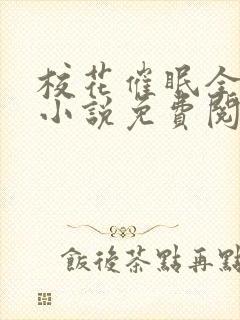 校花催眠全
小說免費閱
飯後茶點再點